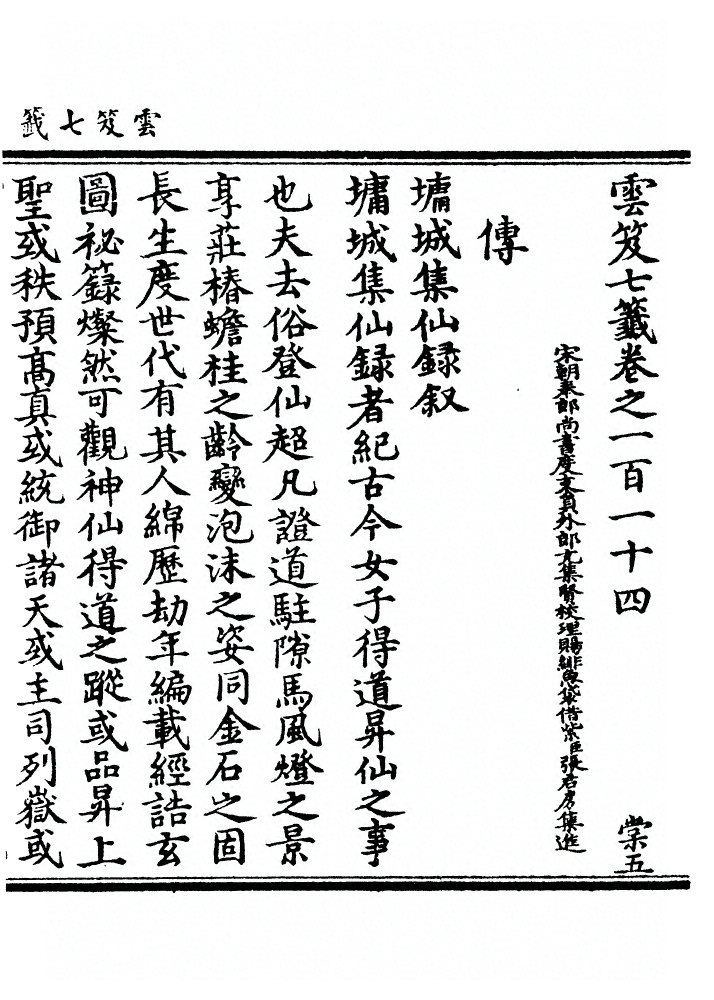 雲笈七籤
雲笈七籤卷之一百一十四　棠五
宋朝奉郎尚書度支員外郎充集賢校理賜緋魚袋借紫臣張君房集進
傳
墉城集仙録叙
墉城集仙録者紀古今女子得道昇仙之事
也夫去俗登仙超凡證道駐隙馬風燈之景
享莊椿蟾桂之齡變泡沫之姿同金石之固
長生度世代有其人綿歷劫年編載經誥玄
圖祕籙燦然可觀神仙得道之蹤或品昇上
聖或秩預高真或統御諸天或主司列嶽或